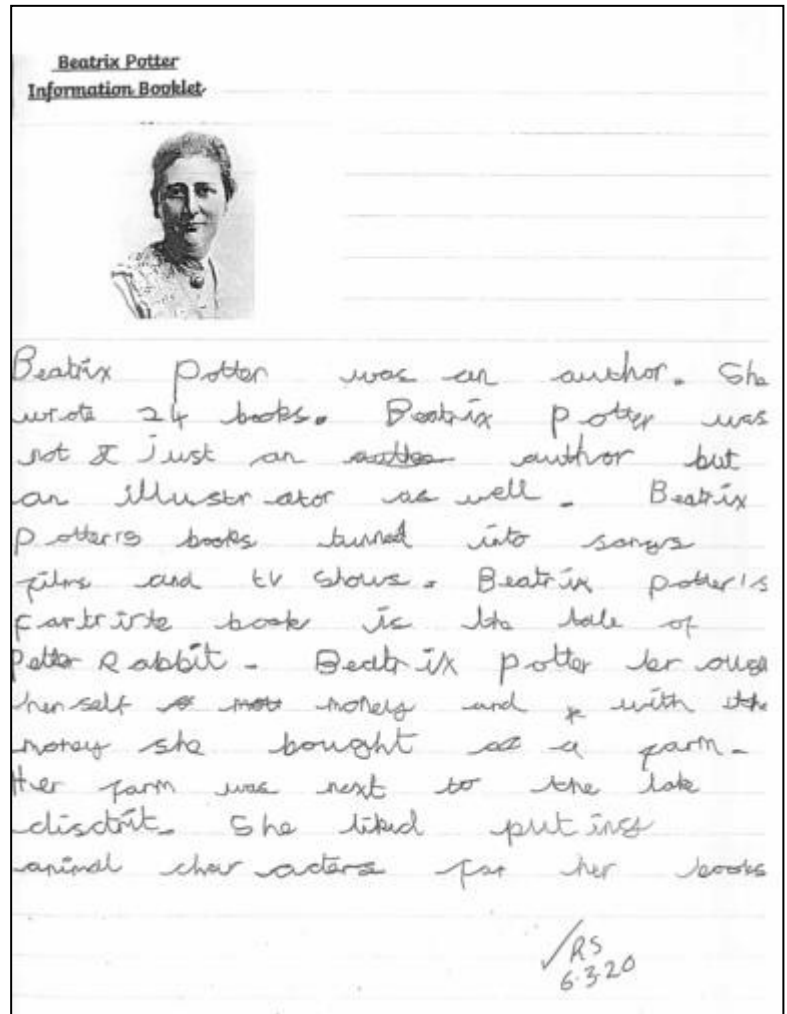 Beatrix Potter
Information Booklet
Beatrix Potter was an author. She
wrote 24 books. Beatrix potter was
not just an author but
an illustrator as well. Beatrix
potter's books turned into songs
films and tv shows. Beatrix potter's
book is the tale of
Petter Rabbit. Beatrix potter
her self money and with the
money she bought a farm.
Her farm was next to the lake
disctrit. She liked puting
animal characters for her books
RS
6.3.20